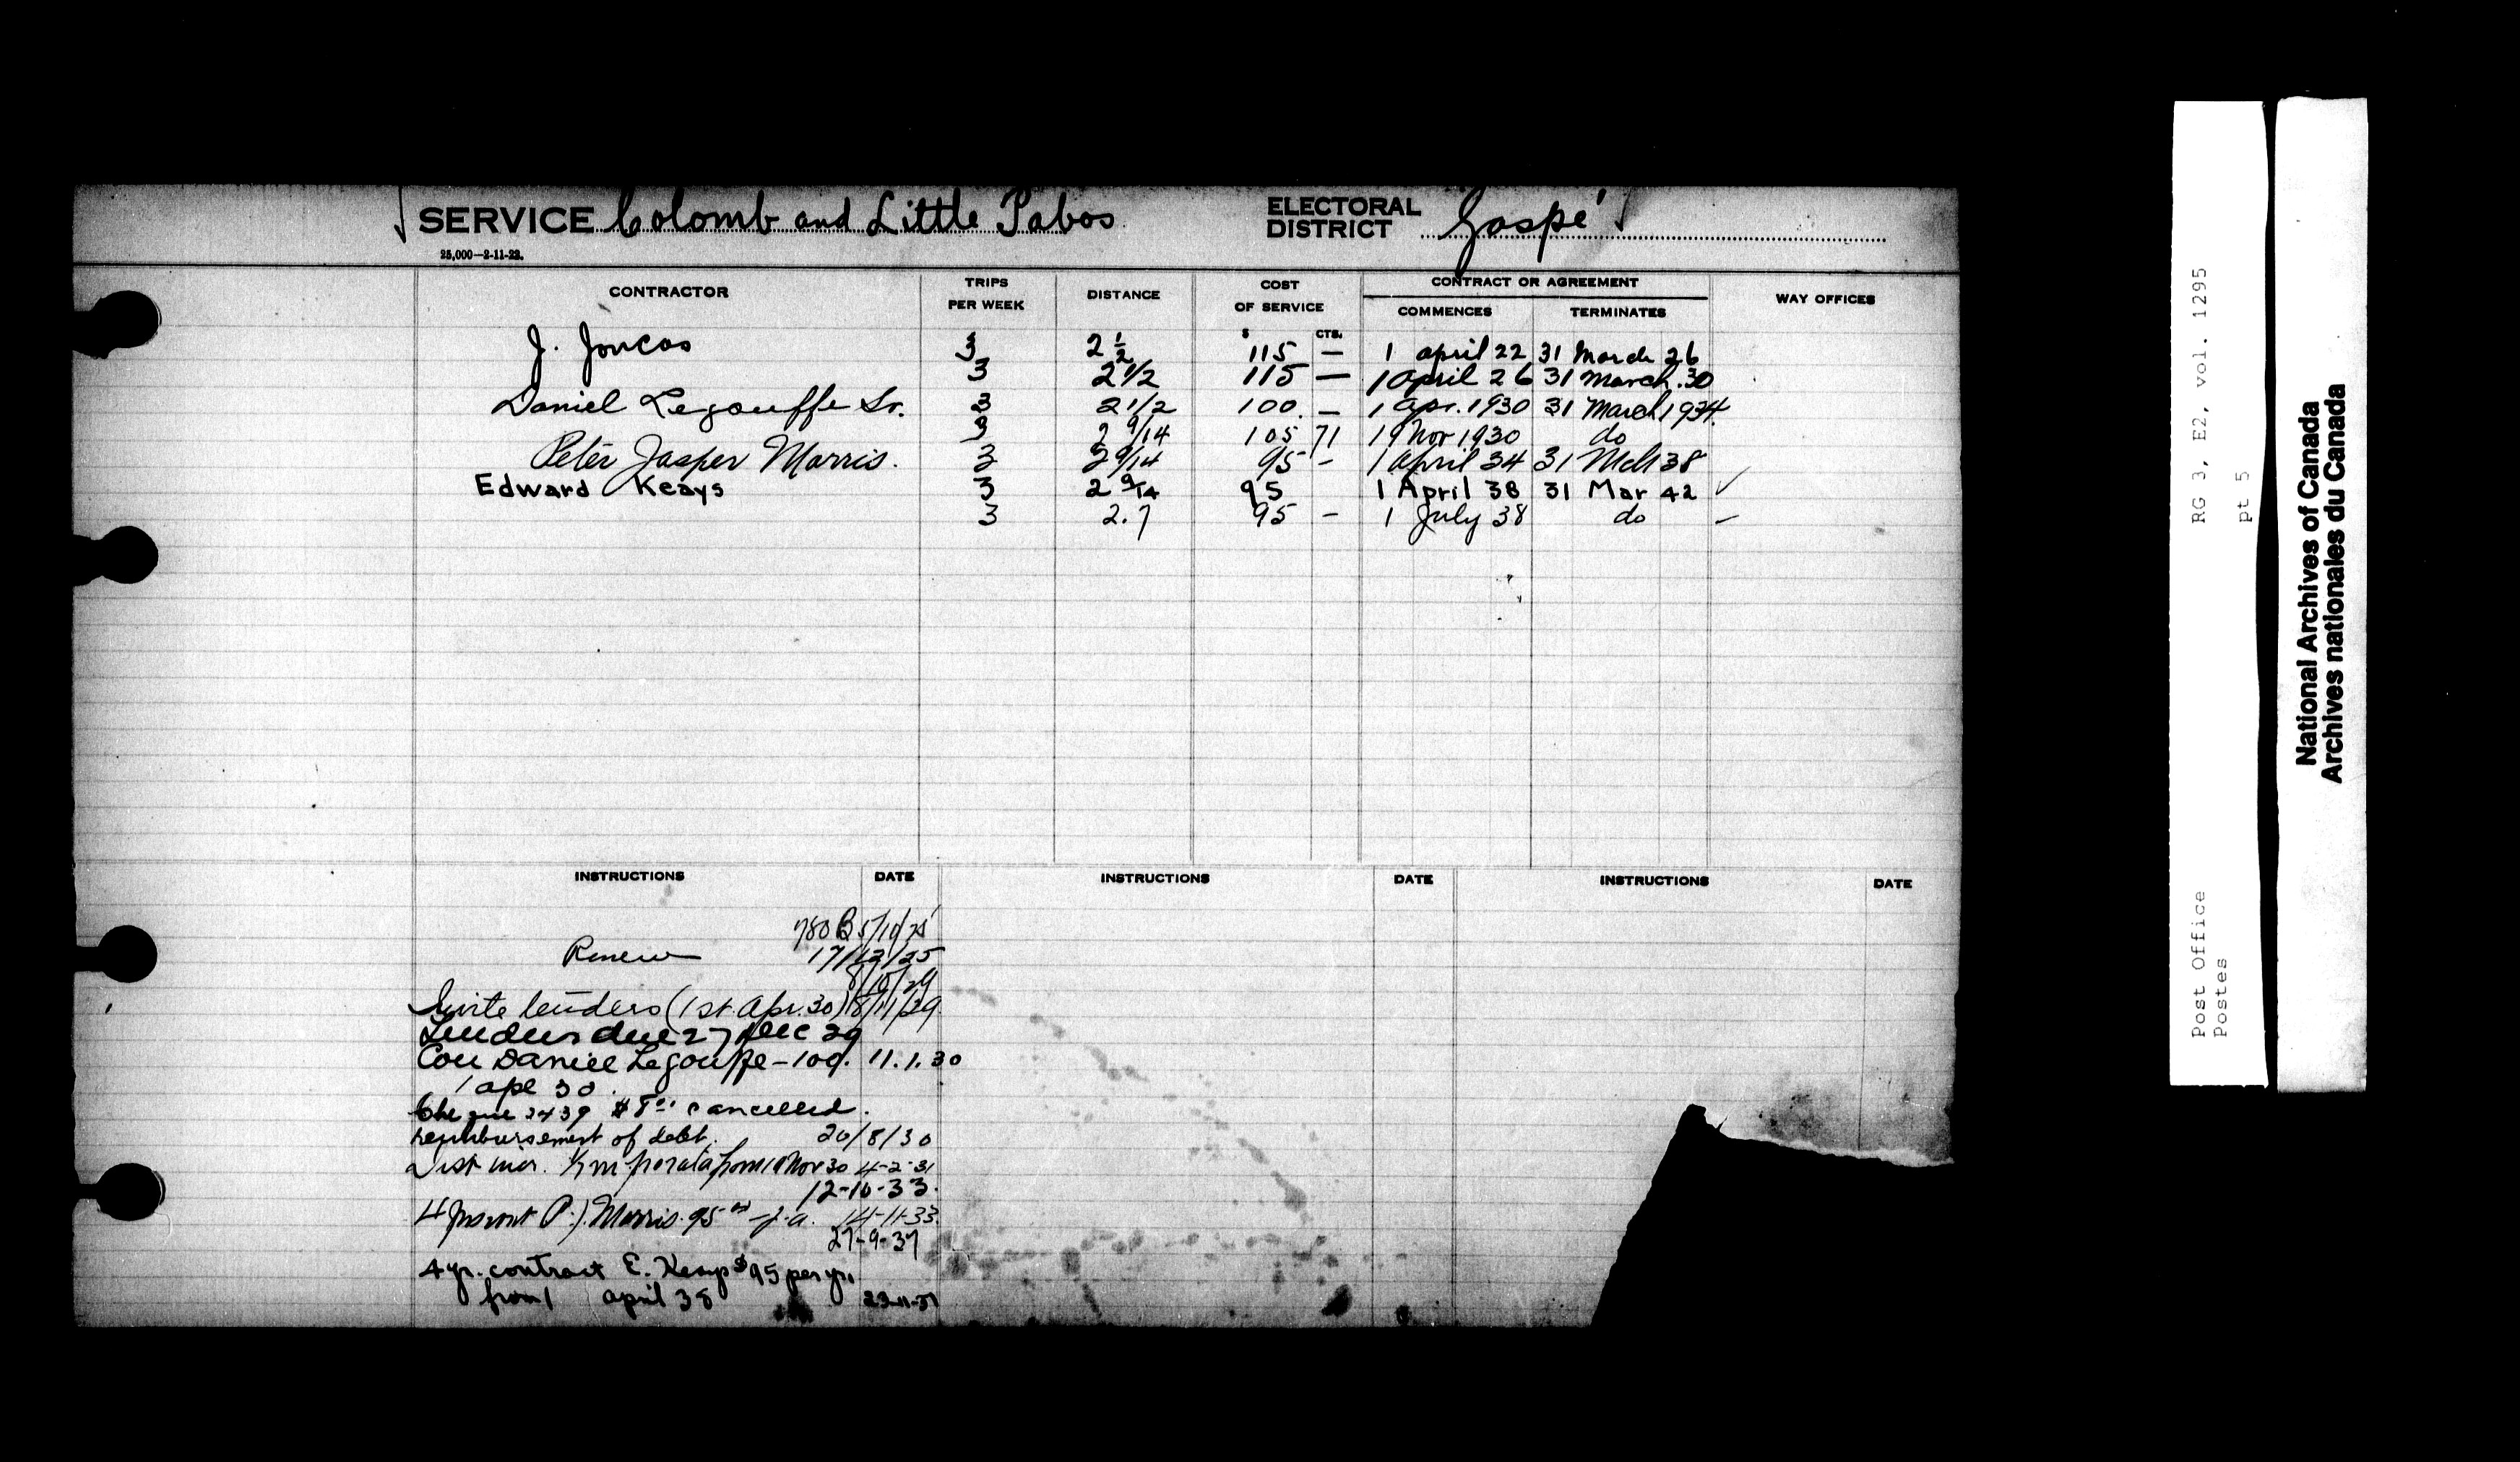 SERVICE Colomb and Little Pabos ELECTORAL DISTRICT Gaspé
25,000—2-11-22.
CONTRACTOR TRIPS PER WEEK DISTANCE COST OF SERVICE CONTRACT OR AGREEMENT WAY OFFICES
COMMENCES TERMINATES
$ CTS.
J. Joncas 3 2 1/2 115 — 1 april 22 31 March 26
3 2 1/2 115 — 1 april 26 31 March. 30
Daniel Legouffe Sr. 3 2 1/2 100. — 1 Apr. 1930 31 March 1934.
3 2 9/14 105 71 19 Nov 1930 do
Peter Jasper Morris. 3 2 9/14 95 - 1 April 34 31 Mch 38
Edward Keays 3 2 9/14 95 1 April 38 31 Mar 42 ✓
3 2.7 95 - 1 July 38 do
INSTRUCTIONS DATE INSTRUCTIONS DATE INSTRUCTIONS DATE
780 B 5/10/25
Renew 17/12/25
8/10/29
Invite tenders (1st. Apr. 30) 18/11/29.
Tenders due 27 Dec 29
Con Daniel Legouffe - 100. 11.1.30
1 apl 30.
Cheque 2439 $8.00 cancelled.
reimbursement of debt. 20/8/30
Dist incr. 1/7 m pro rata from 19 Nov 30 4-2-31
12-10-33.
P.J. Morris. 95.00 14-11-33.
27-9-37
4 yr. contract E. Keays $95 per yr.
from 1 april 38 23-11-37
RG 3, E2, vol. 1295
pt 5
Post Office
Postes
National Archives of Canada
Archives nationales du Canada